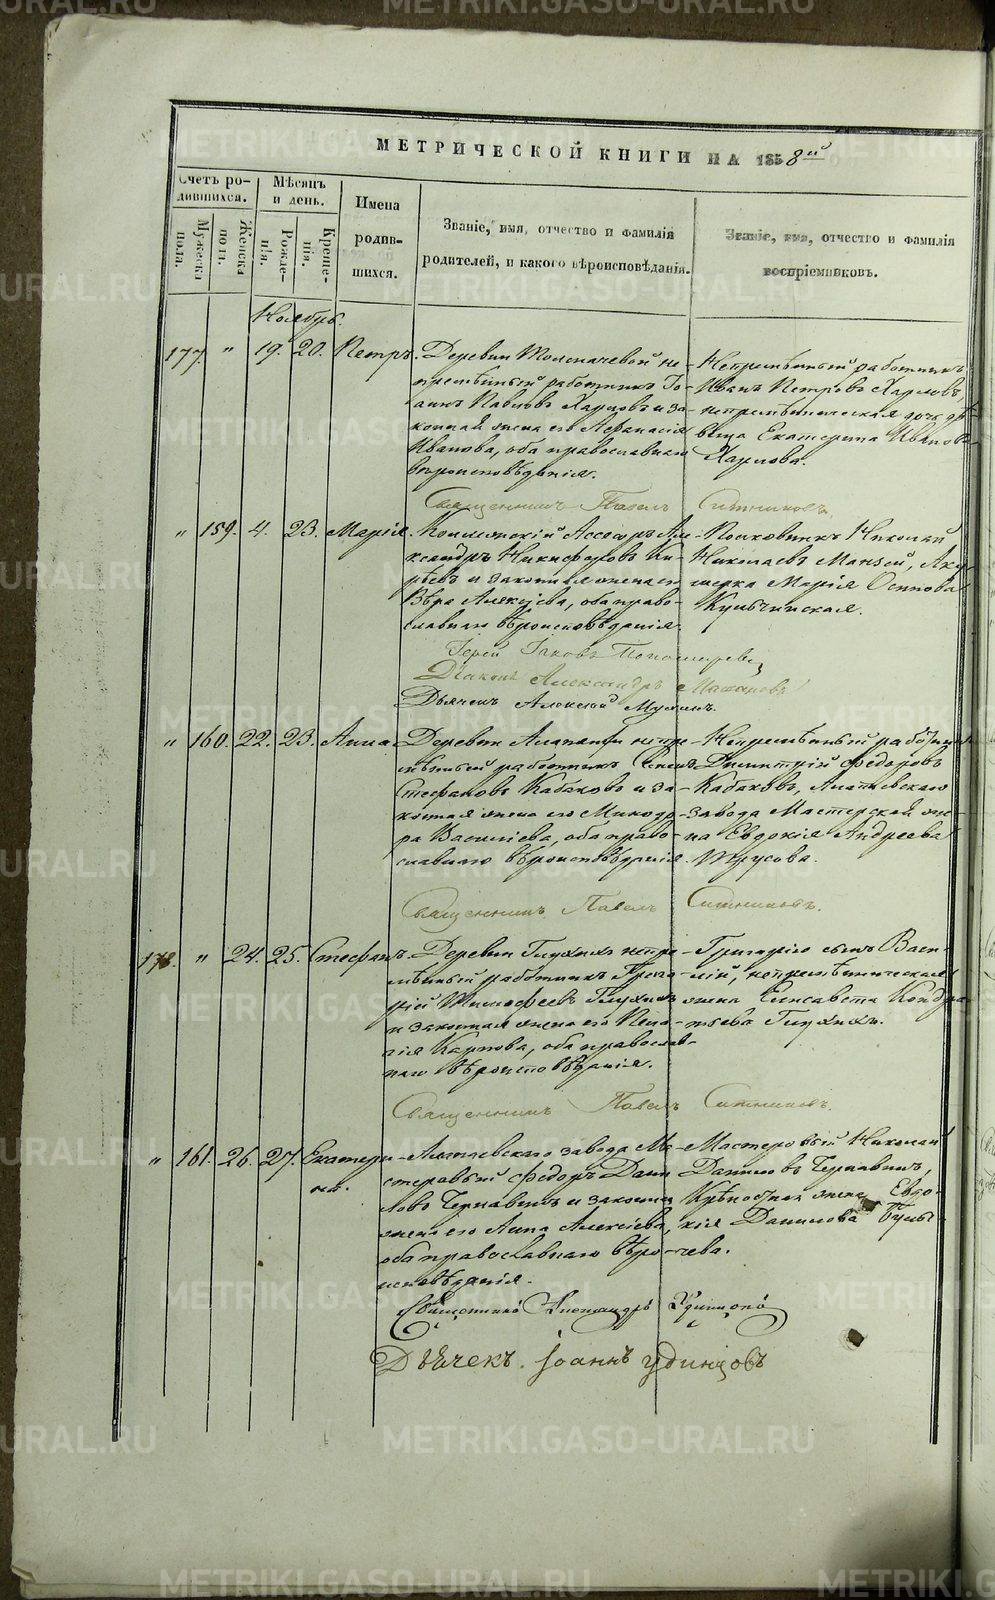 МЕТРИЧЕСКОЙ КНИГИ НА 1858й
Счетъ родившихся.
Мѣсяцъ и день.
Имена родившихся.
Званіе, имя, отчество и фамилія родителей, и какого вѣроисповѣданія.
Званіе, имя, отчество и фамилія воспріемниковъ.
Мужеска полп.
Женска полп.
Рожденія.
Крещенія.
Ноябрь.
177. " 19. 20. Петръ.
Деревни Толмачевой не-
премѣнный работникъ Іо-
аннъ Павловъ Харловъ и за-
конная жена его Афанасія
Иванова, оба православнаго
вѣроисповѣданія.
Непремѣнный работникъ
Иванъ Петровъ Харловъ,
непремѣнническая дочь дѣ-
вица Екатерина Иванова
Харлова.
Священникъ Павелъ Ситниковъ.
" 159. 4. 23. Марія.
Коллежскій Ассесоръ Але-
ксандръ Никифоровъ
и законная жена его
Вѣра Алексѣева, оба право-
славнаго вѣроисповѣданія.
Полковникъ Николай
Николаевъ Манзей,
Марія Осипова
Кульчинская.
Іерей Іаковъ
Діаконъ Александръ
Дьячекъ Алексѣй
" 160. 22. 23. Анна.
Деревни Алапаихи непре-
мѣнный работникъ Симеонъ
Стефановъ Кабаковъ и за-
конная жена его Минодо-
ра Василіева, оба право-
славнаго вѣроисповѣданія.
Непремѣнный работникъ
Димитрій Федоровъ
Кабаковъ, Алапаевскаго
завода Мастерская же-
на Евдокія Андреева
Трусова.
Священникъ Павелъ Ситниковъ.
178. " 24. 25. Стефанъ.
Деревни Глухихъ непре-
мѣнный работникъ Григо-
рій Тимофеевъ Глухихъ
и законная жена его Пела-
гія Карпова, оба православ-
наго вѣроисповѣданія.
Григорію сынъ Васи-
лій, непремѣнническая
жена Елисавета Кондра-
тьева Глухихъ.
Священникъ Павелъ Ситниковъ.
" 161. 26. 27. Екатери-
на.
Алапаевскаго завода Ма-
стеровый Федоръ Дани-
ловъ Чернавинъ и законная
жена его Анна Алексіева,
оба православнаго вѣро-
исповѣданія.
Мастеровый Николай
Даниловъ Чернавинъ,
Крѣпостная жена Евдо-
кія Данилова Булы-
чева.
Священникъ Александръ Удинцовъ
Дьячекъ Іоаннъ Удинцовъ
METRIKI.GASO-URAL.RU